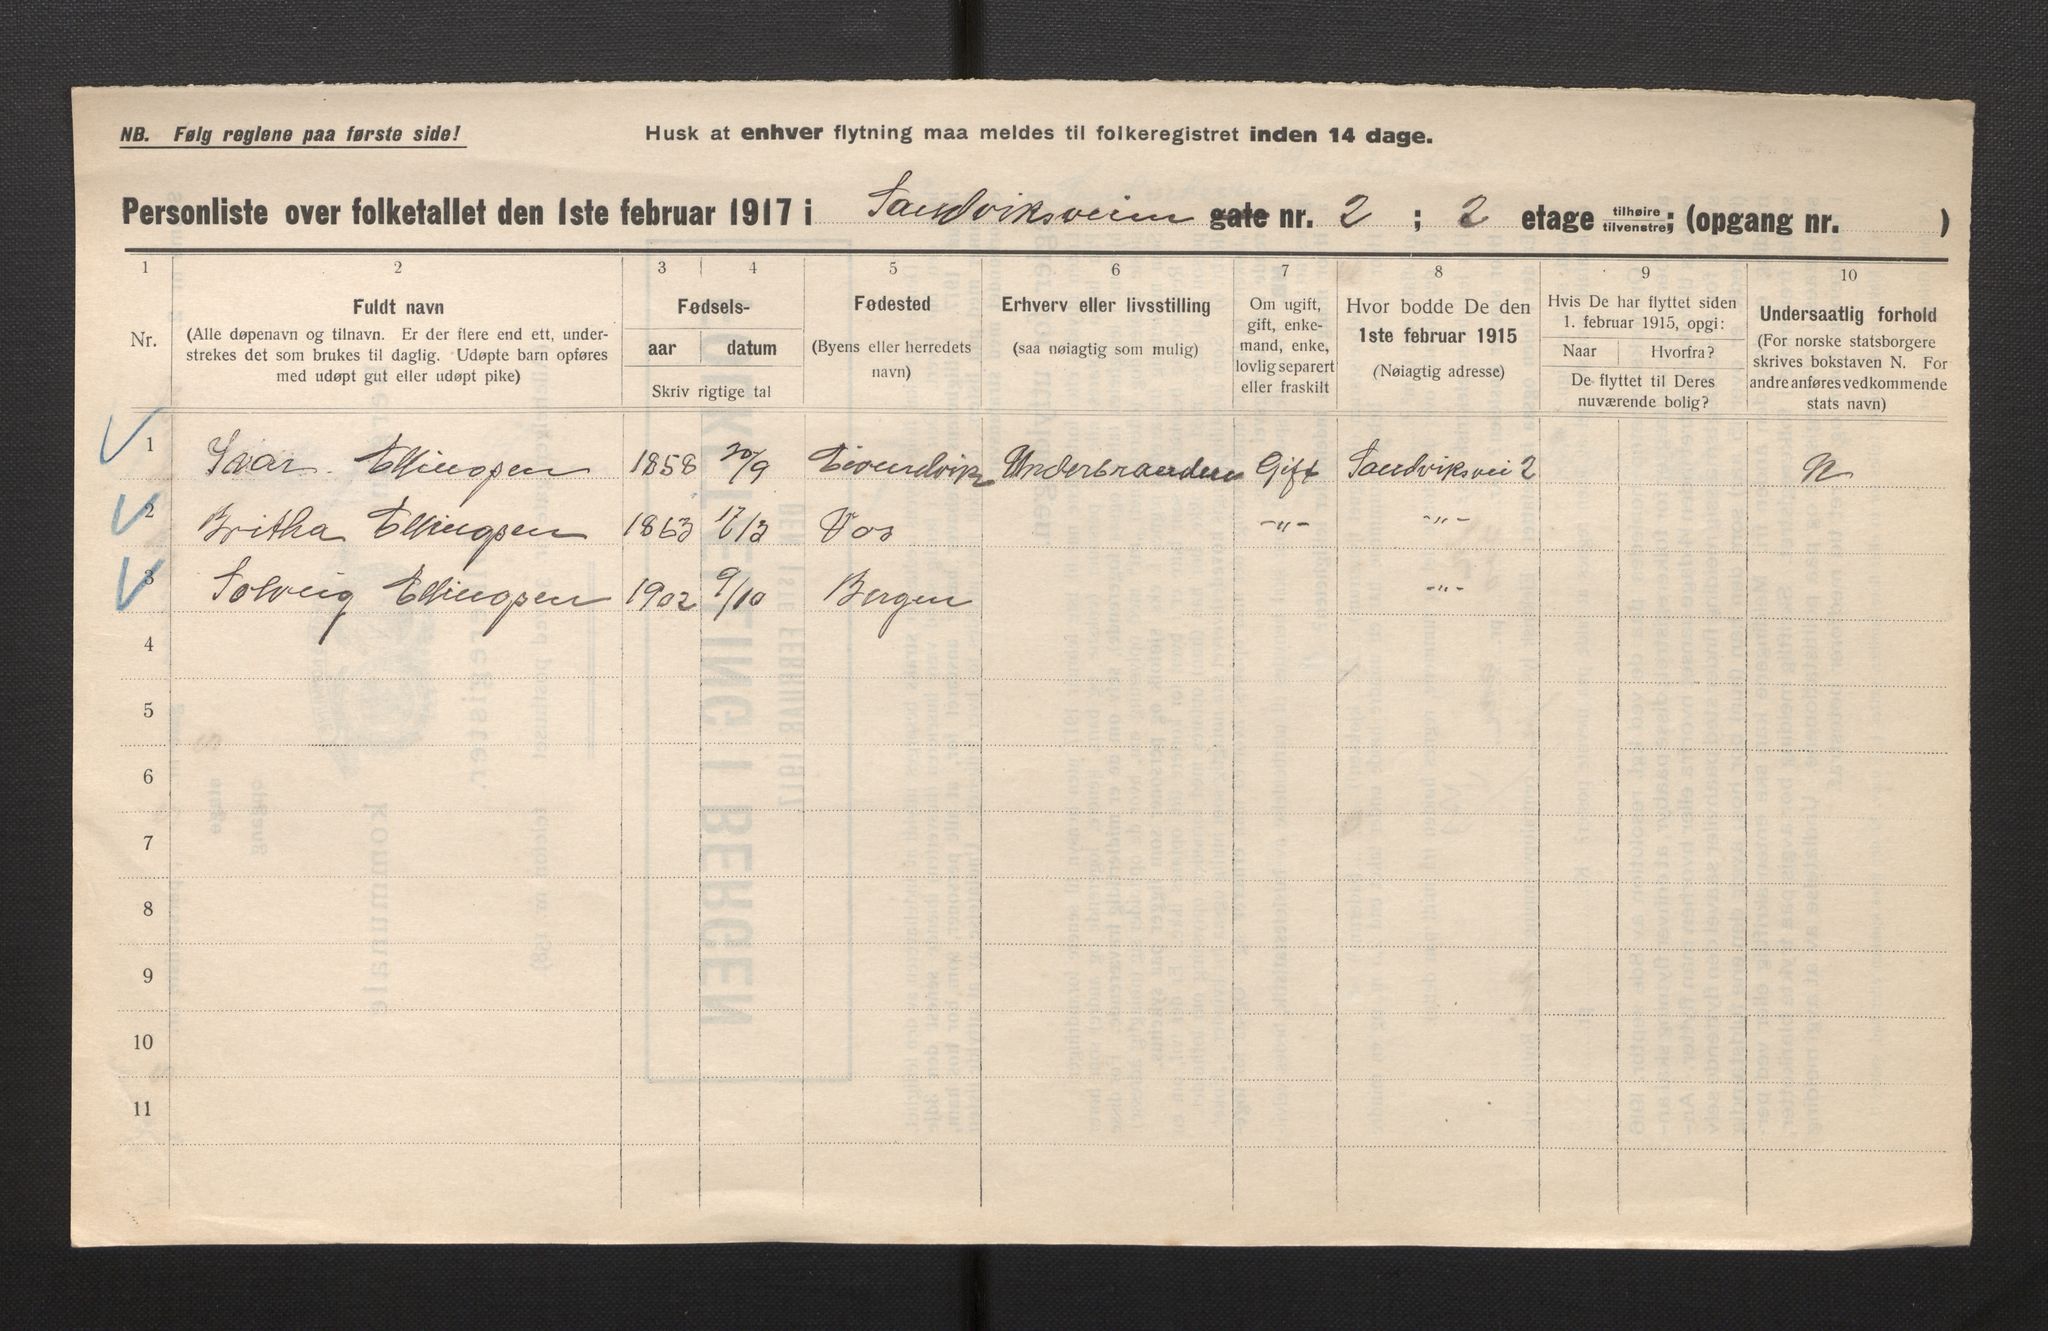 NB. Følg reglene paa første side!
Husk at enhver flytning maa meldes til folkeregistret inden 14 dage.
Personliste over folketallet den 1ste februar 1917 i Sandviksveien gate nr. 2 ; 2 etage tilhøire tilvenstre; (opgang nr. )
1 2 3 4 5 6 7 8 9 10
Nr.
Fuldt navn
(Alle døpenavn og tilnavn. Er der flere end ett, under-
strekes det som brukes til daglig. Udøpte barn opføres
med udøpt gut eller udøpt pike)
Fødsels-
aar datum
Skriv rigtige tal
Fødested
(Byens eller herredets
navn)
Erhverv eller livsstilling
(saa nøiagtig som mulig)
Om ugift,
gift, enke-
mand, enke,
lovlig separert
eller fraskilt
Hvor bodde De den
1ste februar 1915
(Nøiagtig adresse)
Hvis De har flyttet siden
1. februar 1915, opgi:
Naar Hvorfra?
De flyttet til Deres
nuværende bolig?
Undersaatlig forhold
(For norske statsborgere
skrives bokstaven N. For
andre anføres vedkommende
stats navn)
1 Ivar Ellingsen 1858 20/9 Eivindvik Underbrandm Gift Sandviksvei 2 N
2 Britha Ellingsen 1863 17/3 Vos -"- -"-
3 Solveig Ellingsen 1902 9/10 Bergen -"-
4
5
6
7
8
9
10
11